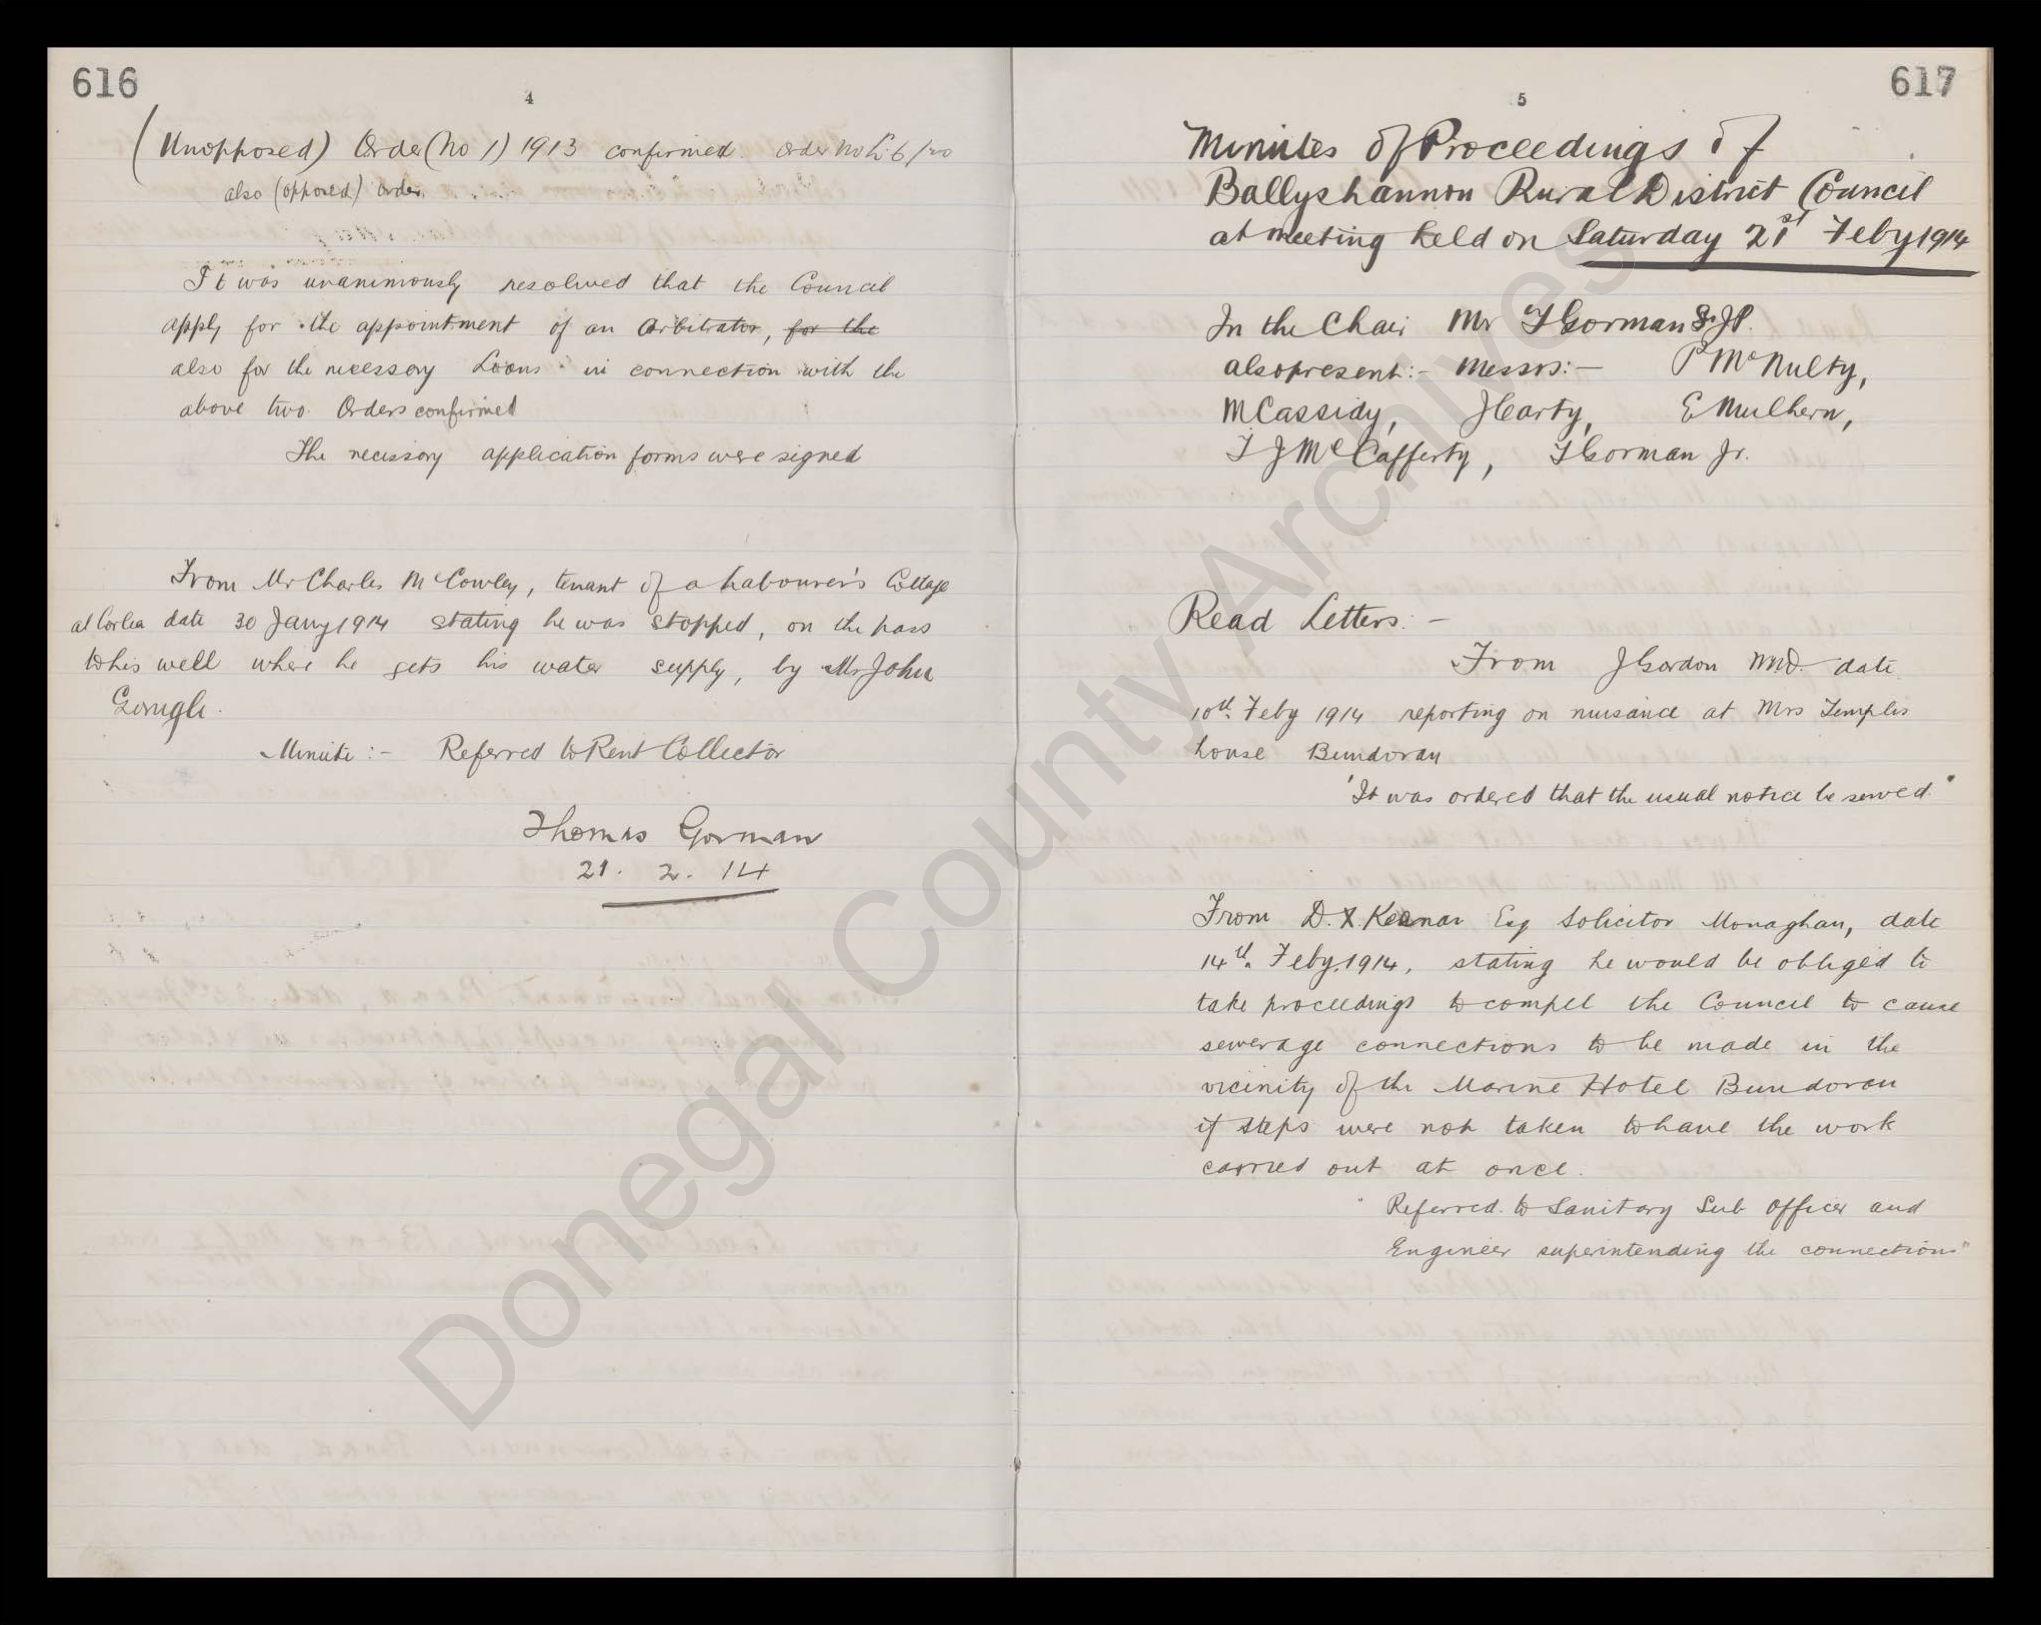 616
4
(Unopposed) Order (No 1) 1913 confirmed. Order No
also (opposed) Order.
It was unanimously resolved that the Council
apply for the appointment of an Arbitrator, for the
also for the necessary Loans in connection with the
above two Orders confirmed
The necessary application forms were signed
From Mr Charles McCowley, tenant of a Labourer's Cottage
at Corlea date 30 Jany 1914 stating he was stopped, on the pass
to his well where he gets his water supply, by Mr John
Minute :- Referred to Rent Collector
Thomas Gorman
21. 2. 14
617
5
Minutes of Proceedings of
Ballyshannon Rural District Council
at meeting held on Saturday 21st Feby 1914
In the Chair Mr T Gorman Sr. J.P.
also present:- Messrs:- P McNulty,
M Cassidy, J Carty, E Mulhern,
T J McCafferty, T Gorman Jr.
Read Letters:-
From J Gordon M.D. date
10th Feby 1914 reporting on nuisance at Mrs Temples
house Bundoran
"It was ordered that the usual notice be served"
From D. X. Keenan Esq Solicitor Monaghan, date
14th Feby. 1914, stating he would be obliged to
take proceedings to compel the Council to cause
sewerage connections to be made in the
vicinity of the Marine Hotel Bundoran
if steps were not taken to have the work
carried out at once.
"Referred to Sanitary Sub Officer and
Engineer superintending the connections"
Donegal County Archives